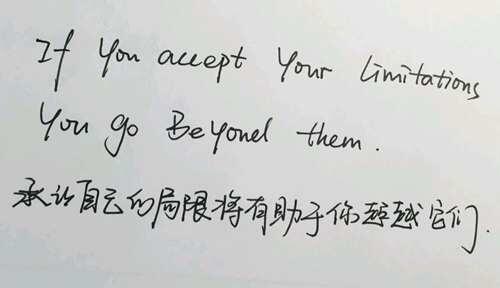 If You accept Your limitations
You go Beyond them.
承认自己的局限将有助于你超越它们.